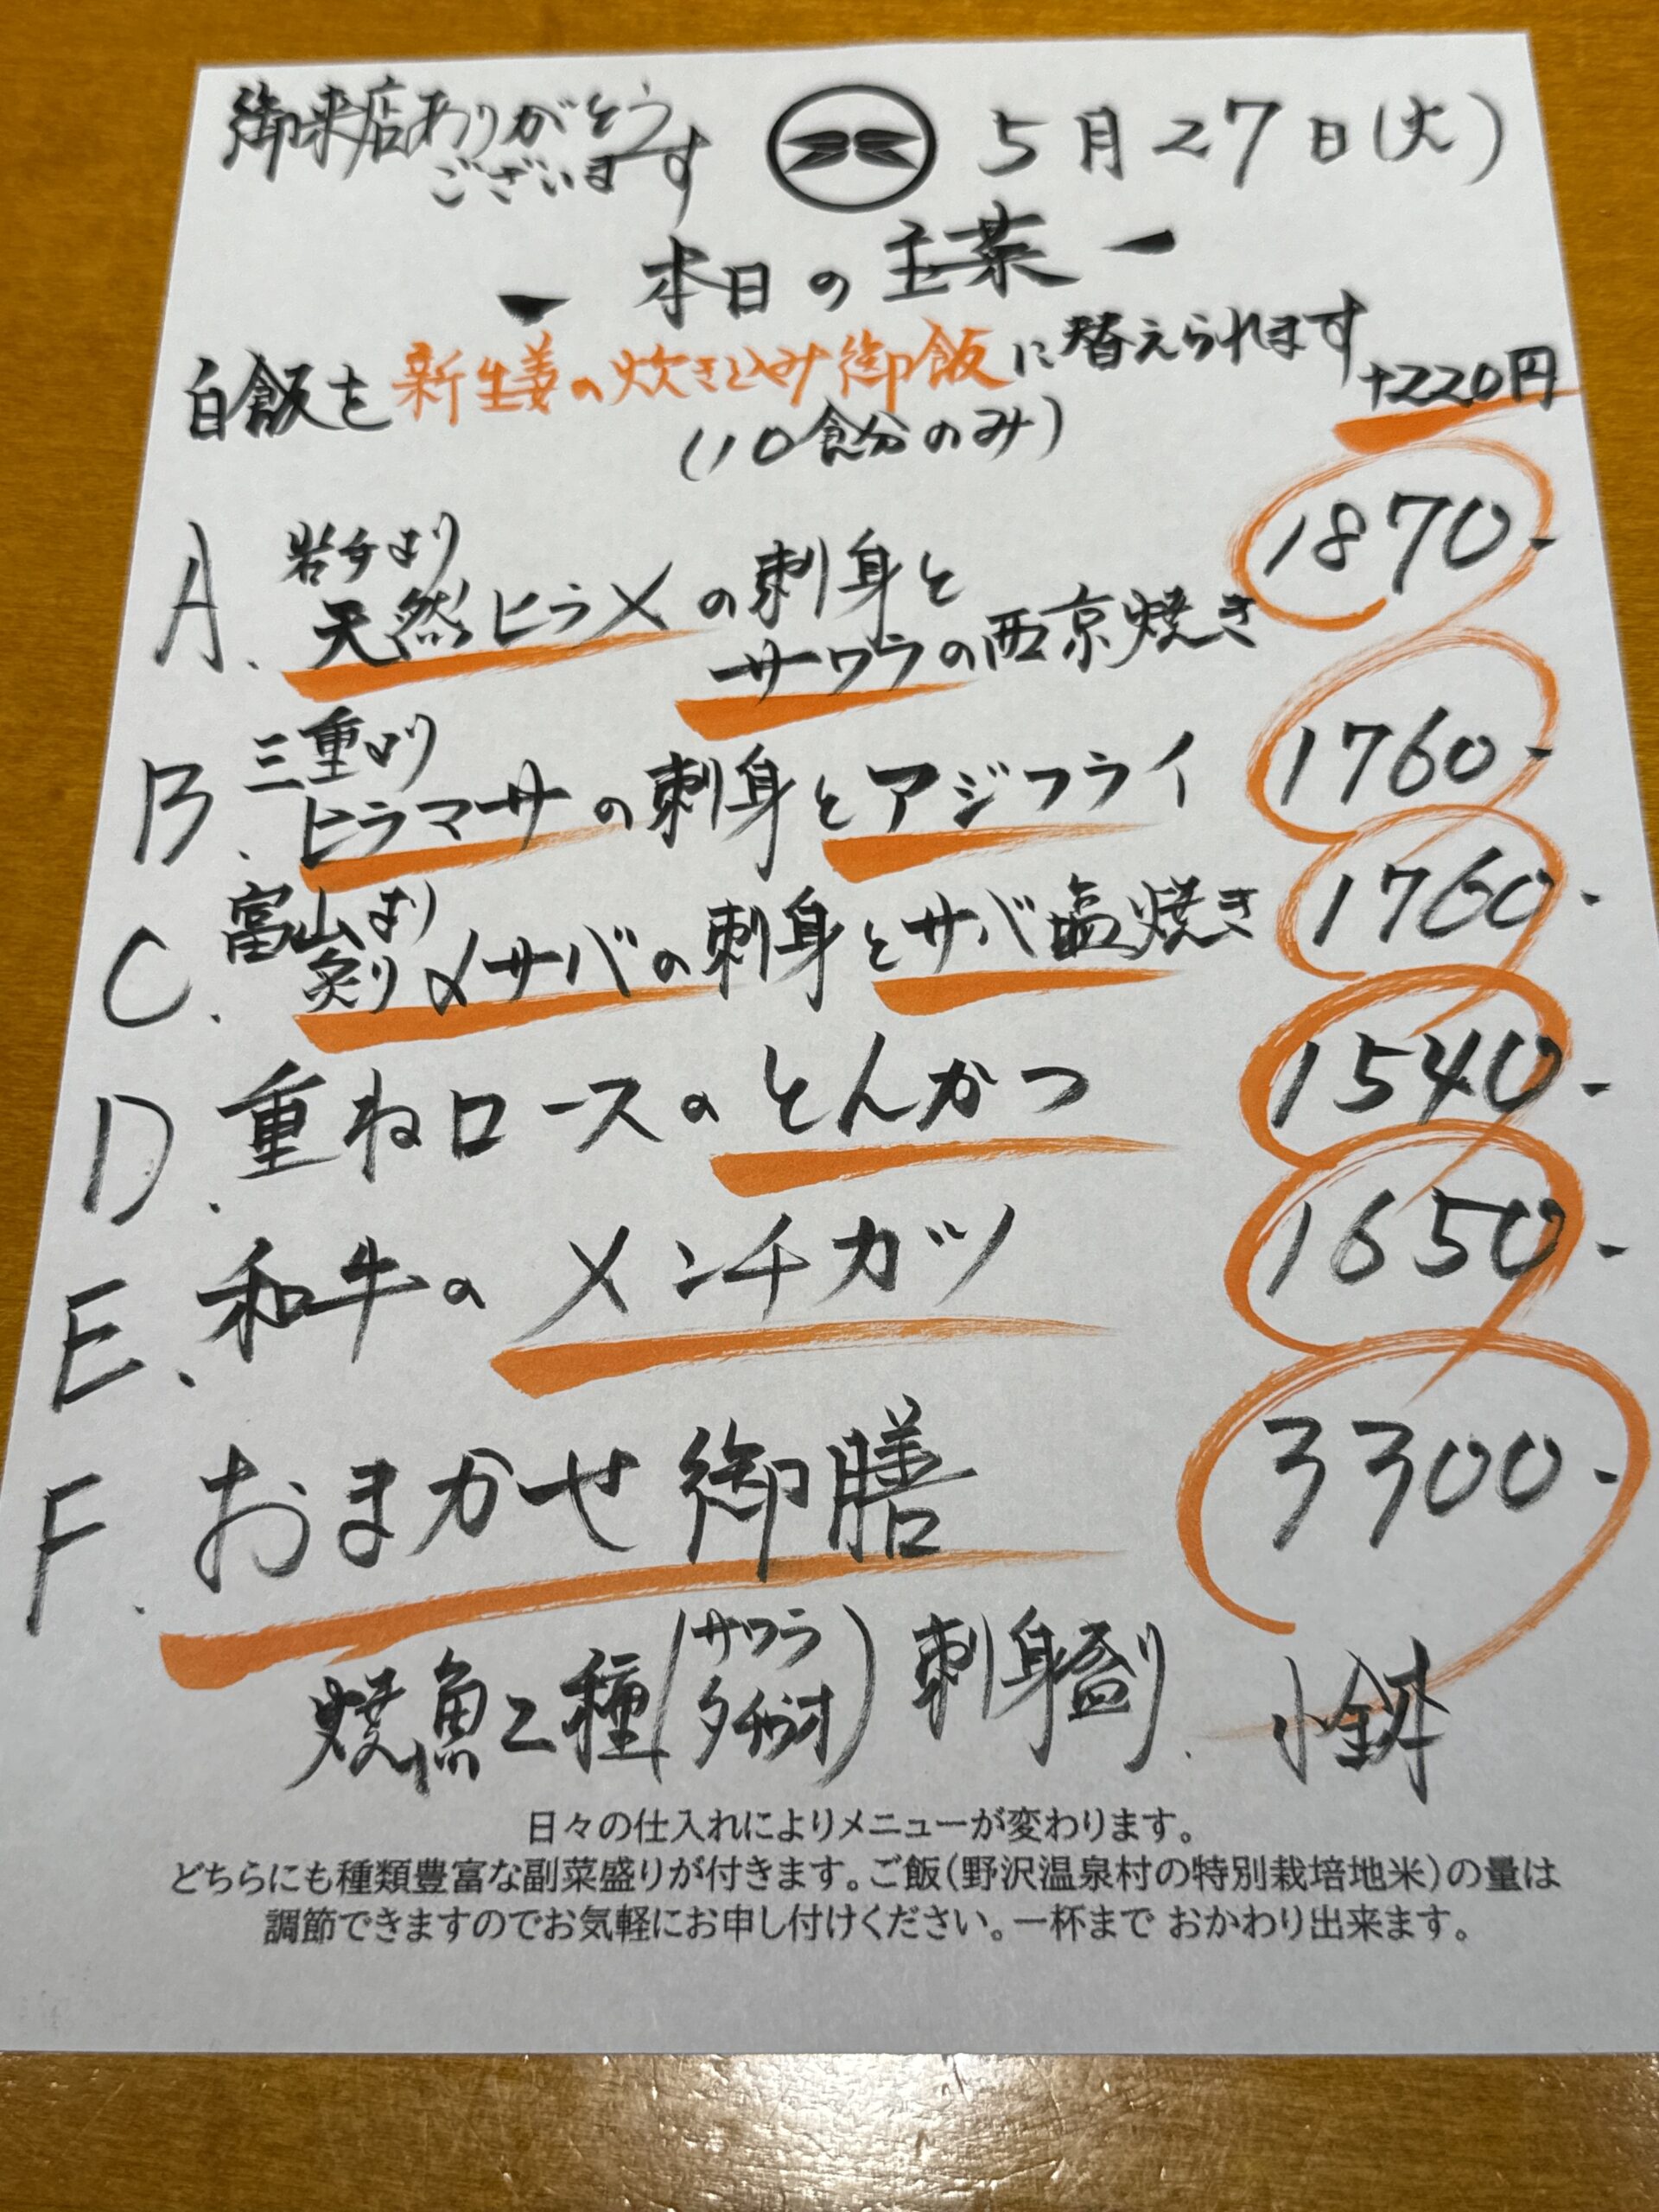 御来店ありがとう
ございます
5月27日(火)
ー 本日の主菜 ー
白飯を新生姜の炊き込み御飯に替えられます
+220円
(10食分のみ)
A. 岩手より
天然ヒラメの刺身と
サワラの西京焼き
1870-
B. 三重より
ヒラマサの刺身とアジフライ
1760-
C. 富山より
炙り〆サバの刺身とサバ塩焼き
1760-
D. 重ねロースのとんかつ
1540-
E. 和牛のメンチカツ
1650-
F. おまかせ御膳
3300-
焼魚2種(サワラ
タチウオ)刺身盛り. 小鉢
日々の仕入れによりメニューが変わります。
どちらにも種類豊富な副菜盛りが付きます。ご飯(野沢温泉村の特別栽培地米)の量は
調節できますのでお気軽にお申し付けください。一杯まで おかわり出来ます。